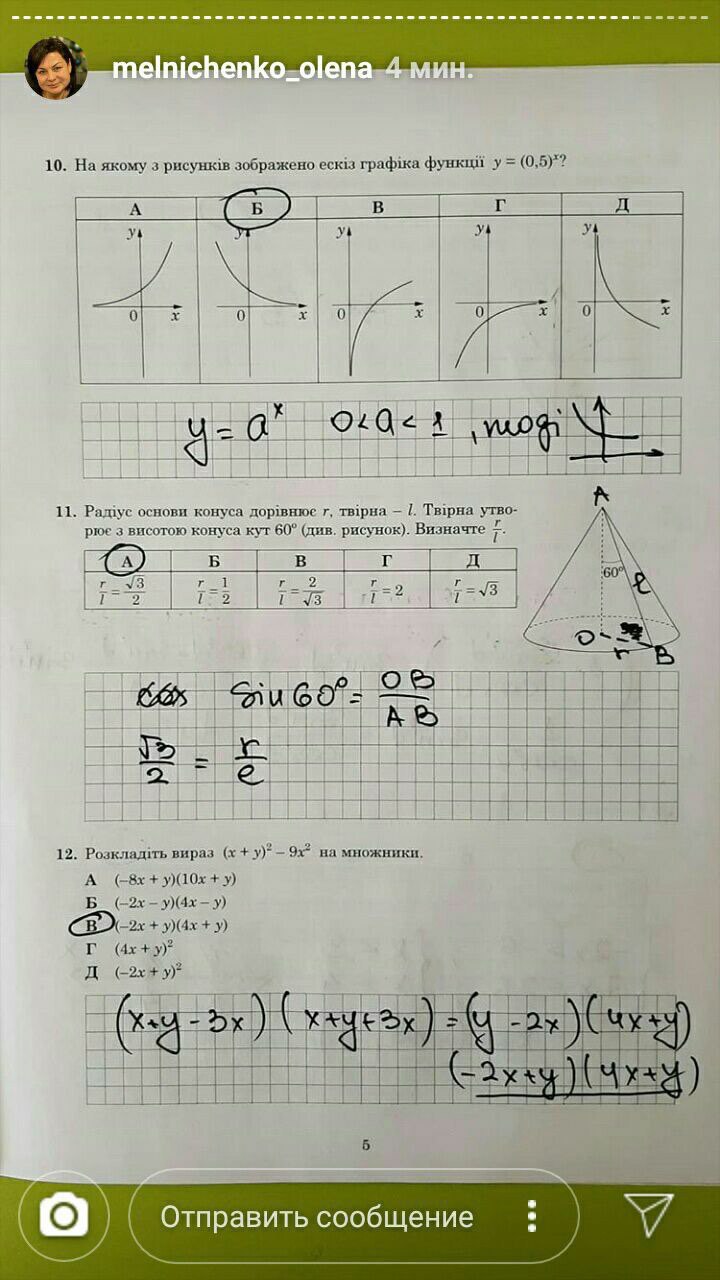 melnichenko_olena 4 мин.
10. На якому з рисунків зображено ескіз графіка функції y = (0,5)ˣ?
А Б В Г Д
y y y y y
0 x 0 x 0 x 0 x 0 x
y = aˣ 0<a<1, тоді
11. Радіус основи конуса дорівнює r, твірна – l. Твірна утво-
рює з висотою конуса кут 60° (див. рисунок). Визначте r/l.
А Б В Г Д
r/l = √3/2 r/l = 1/2 r/l = 2/√3 r/l = 2 r/l = √3
A
60°
l
O
r
B
sin 60° = OB/AB
√3/2 = r/l
12. Розкладіть вираз (x + y)² – 9x² на множники.
А (–8x + y)(10x + y)
Б (–2x – y)(4x – y)
В (–2x + y)(4x + y)
Г (4x + y)²
Д (–2x + y)²
(x+y-3x)(x+y+3x)=(y-2x)(4x+y)
(-2x+y)(4x+y)
5
Отправить сообщение